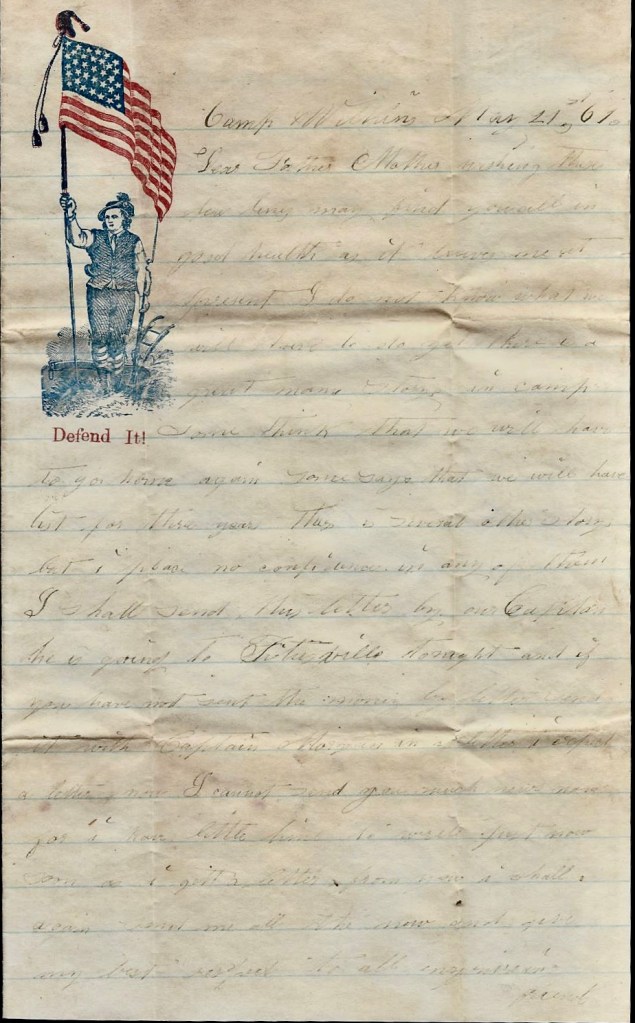 Camp Wilkins May 21st 61
Dear Father Mother wishing these
few lines may find you all in
good health as it leaves me at
present I do not know what we
will have to do yet there is a
great many story in camp
Defend It!
Some think that we will have
to go home again some says that we will have
list for three years they is several other story
but i place no confidence in any of them
I shall send this letter by our Captain
he is going to Titusville tonight and if
you have not sent the money be
it with Captain in a letter I expect
a letter now I cannot send you much news now
for i have little time to write just now
soon as i get a letter from now i shall
again send me all the news and give
my best respect to all enquirein
friends